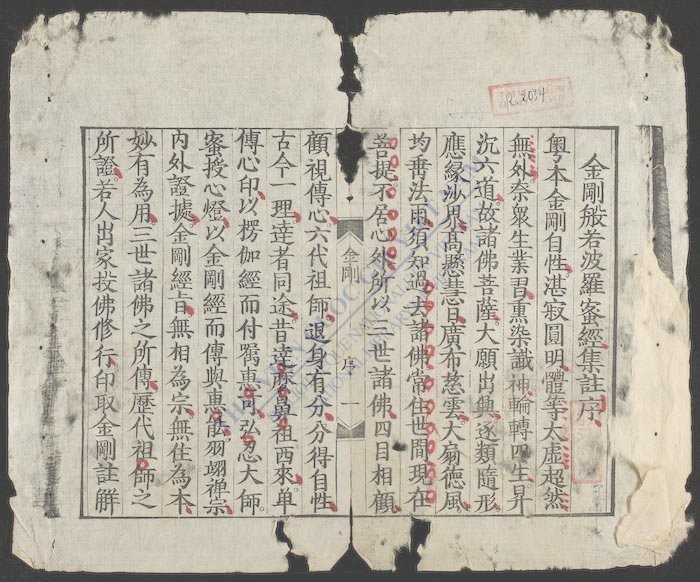 金剛般若波羅蜜經集註序
粤本金剛自性湛寂圓明體等太虛超然
無外奈衆生業習熏染識神輪轉四生昇
沉六道故諸佛菩薩大願出興逐類隨形
應緣沙界高懸慧日廣布慈雲大扇德風
均垂法雨須知過去諸佛常住世間現在
菩提不居心外所以三世諸佛四目相顧
金剛 序 一
顧視傳心六代祖師退身有分分得自性
古今一理達者同途昔達磨鼻祖西來單
傳心印以楞伽經而付囑惠可弘忍大師
蜜授心燈以金剛經而傳與惠能列翊禪宗
內外證據金剛經旨無相為宗無住為本
妙有為用三世諸佛之所傳歷代祖師之
所證若人出家投佛修行印取金剛註解
R.2034